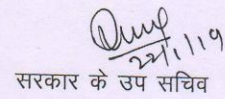 22/1/19
सरकार के उप सचिव